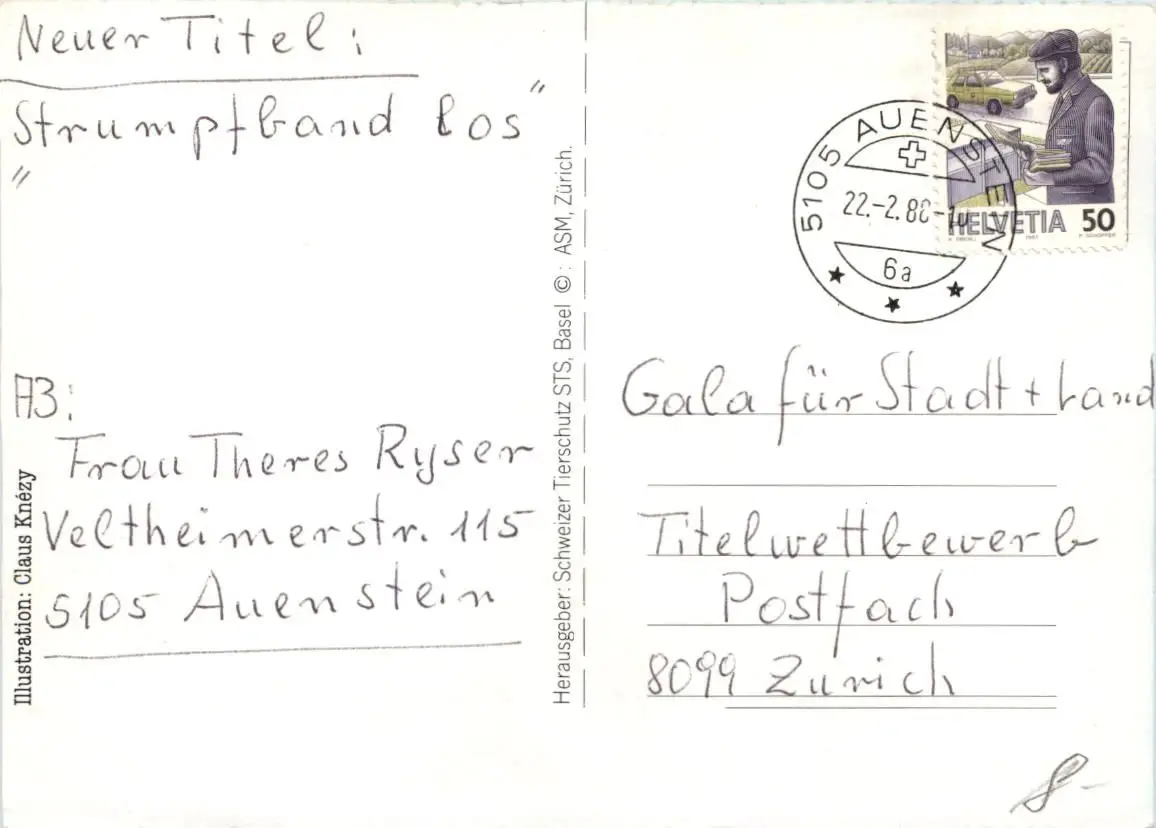 Neuer Titel:
„Strumpfband los"
A3:
Frau Theres Ryser
Veltheimerstr. 115
5105 Auenstein
Illustration: Claus Knézy
Herausgeber: Schweizer Tierschutz STS, Basel ©: ASM, Zürich.
5105 AUENSTEIN
22.-2.88-1
6a
HELVETIA 50
1987
Gala für Stadt + Land
Titelwettbewerb
Postfach
8099 Zürich
8-